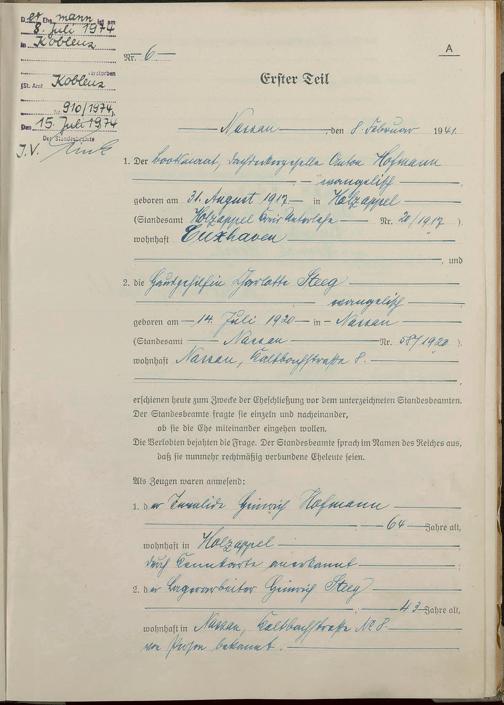 Der Ehemann ist am
8. Juli 1974
in Koblenz
verstorben
(St. Amt Koblenz
Nr. 910/1974)
Den 15. Juli 1974
Der Standesbeamte
J.V.
A
Nr. 6
Erster Teil
Nassau, den 8. Februar 1941.
1. Der Bootsmaat, Dachdeckergeselle Anton Hofmann
evangelisch
geboren am 31. August 1917 in Holzappel
(Standesamt Holzappel Kreis Unterlahn Nr. 20/1917).
wohnhaft Cuxhaven
, und
2. die Hausgehilfin Charlotte Steeg
evangelisch
geboren am 14. Juli 1920 in Nassau
(Standesamt Nassau Nr. 58/1920).
wohnhaft Nassau, Kaltbachstraße 8.
erschienen heute zum Zwecke der Eheschließung vor dem unterzeichneten Standesbeamten.
Der Standesbeamte fragte sie einzeln und nacheinander,
ob sie die Ehe miteinander eingehen wollen.
Die Verlobten bejahten die Frage. Der Standesbeamte sprach im Namen des Reiches aus,
daß sie nunmehr rechtmäßig verbundene Eheleute seien.
Als Zeugen waren anwesend:
1. der Invalide Heinrich Hofmann
64 Jahre alt,
wohnhaft in Holzappel
durch Kennkarte anerkannt
2. der Lagerarbeiter Heinrich Steeg
43 Jahre alt,
wohnhaft in Nassau, Kaltbachstraße No 8
von Person bekannt.